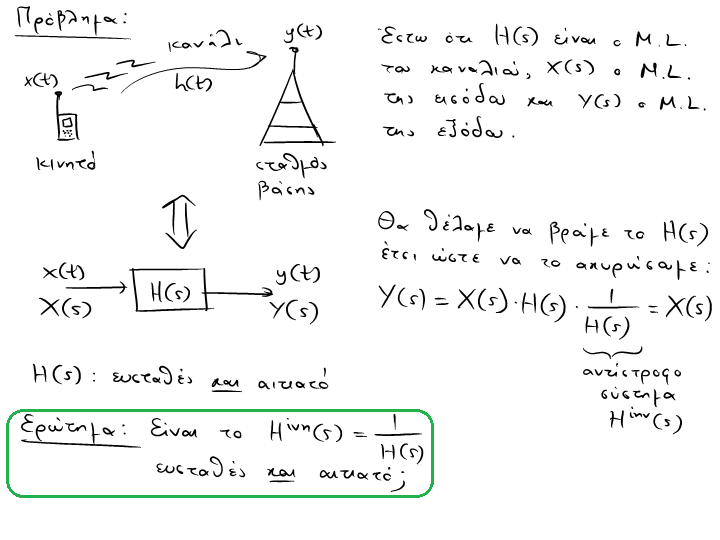 Πρόβλημα:
κανάλι
y(t)
x(t)
h(t)
κινητό
σταθμός
βάσης
Έστω ότι H(s) είναι ο Μ.L.
του καναλιού, X(s) ο Μ.L.
της εισόδου και Y(s) ο Μ.L.
της εξόδου.
x(t)
X(s)
H(s)
y(t)
Y(s)
Θα θέλαμε να βρούμε το H(s)
έτσι ώστε να το ακυρώσουμε:
Y(s) = X(s)·H(s)·1/H(s) = X(s)
αντίστροφο
σύστημα
H^inv(s)
H(s): ευσταθές και αιτιατό
Ερώτημα: Είναι το H^inv(s) = 1/H(s)
ευσταθές και αιτιατό;